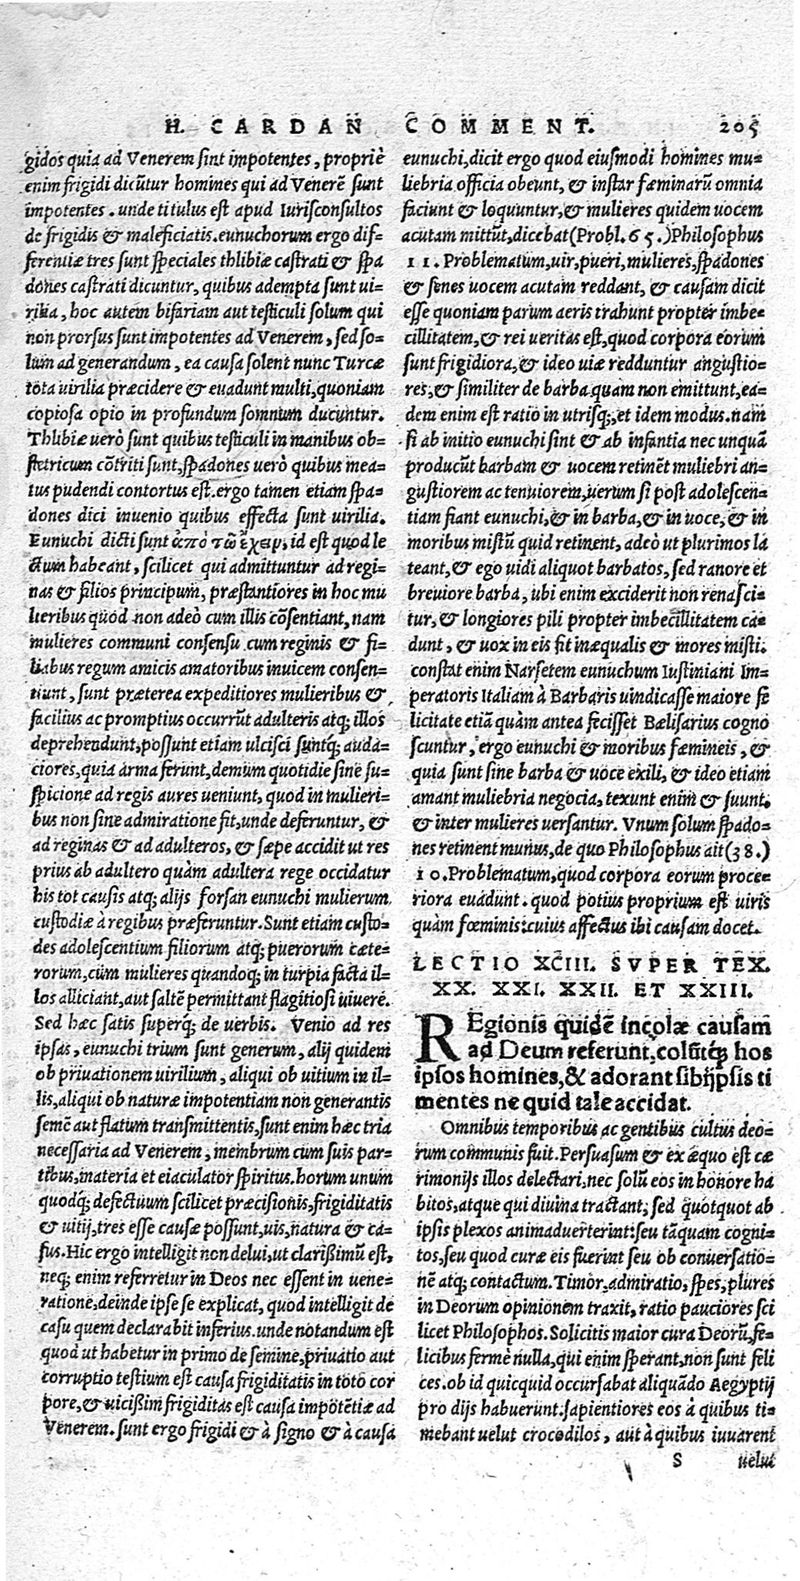 H. CARDAN COMMENT. 205
gidos quia ad Venerem sint impotentes, propriè
enim frigidi dicũtur homines qui ad Venerẽ sunt
impotentes. unde titulus est apud Iurisconsultos
de frigidis & maleficiatis. eunuchorum ergo dif-
ferentiæ tres sunt speciales thlibiæ castrati & spa
dones castrati dicuntur, quibus adempta sunt ui-
rilia, hoc autem bifariam aut testiculi solum qui
non prorsus sunt impotentes ad Venerem, sed so-
lum ad generandum, ea causa solent nunc Turcæ
tota uirilia præcidere & euadunt multi, quoniam
copiosa opio in profundum somnum ducuntur.
Thlibiæ uerò sunt quibus testiculi in manibus ob-
stetricum cõtriti sunt, spadones uerò quibus mea-
tus pudendi contortus est. ergo tamen etiam spa-
dones dici inuenio quibus effecta sunt uirilia.
Eunuchi dicti sunt ἀπὸ τῶ ἔχειν, id est quod le
ctum habeant, scilicet qui admittuntur ad regi-
nas & filios principum, præstantiores in hoc mu
lieribus quòd non adeò cum illis cõsentiant, nam
mulieres communi consensu cum reginis & fi-
liabus regum amicis amatoribus inuicem consen-
tiunt, sunt præterea expeditiores mulieribus &
facilius ac promptius occurrũt adulteris atq; illos
deprehendunt, possunt etiam ulcisci suntq; auda-
ciores, quia arma ferunt, demum quotidie sine su-
spicione ad regis aures ueniunt, quod in mulieri-
bus non sine admiratione fit, unde deferuntur, &
ad reginas & ad adulteros, & sæpe accidit ut res
prius ab adultero quàm adultera rege occidatur
his tot causis atq; alijs forsan eunuchi mulierum
custodiæ à regibus præferuntur. Sunt etiam custo-
des adolescentium filiorum atq; puerorum cæte-
rorum, cùm mulieres quandoq; in turpia facta il-
los alliciant, aut saltẽ permittant flagitiosi uiuere.
Sed hæc satis superq; de uerbis. Venio ad res
ipsas, eunuchi trium sunt generum, alij quidem
ob priuationem uirilium, aliqui ob uitium in il-
lis, aliqui ob naturæ impotentiam non generantis
semẽ aut flatum transmittentis, sunt enim hæc tria
necessaria ad Venerem, membrum cum suis par-
tibus, materia et eiaculator spiritus. horum unum
quodq; defectuum scilicet præcisionis, frigiditatis
& uitij, tres esse causæ possunt, uis, natura & ca-
sus. Hic ergo intelligit non delui, ut clarißimũ est,
neq; enim referretur in Deos nec essent in uene-
ratione, deinde ipse se explicat, quod intelligit de
casu quem declarabit inferius. unde notandum est
quod ut habetur in primo de semine, priuatio aut
corruptio testium est causa frigiditatis in toto cor
pore, & uicißim frigiditas est causa impotẽtiæ ad
Venerem. sunt ergo frigidi & à signo & à causa
eunuchi, dicit ergo quod eiusmodi homines mu-
liebria officia obeunt, & instar fæminarũ omnia
faciunt & loquuntur, & mulieres quidem uocem
acutam mittũt, dicebat (Probl. 65.) Philosophus
11. Problematum, uir, pueri, mulieres, spadones
& senes uocem acutam reddant, & causam dicit
esse quoniam parum aeris trahunt propter imbe-
cillitatem, & rei ueritas est, quod corpora eorum
sunt frigidiora, & ideo uiæ redduntur angustio-
res, & similiter de barba quam non emittunt, ea-
dem enim est ratio in utrisq;, et idem modus. nam
si ab initio eunuchi sint & ab infantia nec unquã
producũt barbam & uocem retinẽt muliebri an-
gustiorem ac tenuiorem, uerum si post adolescen-
tiam fiant eunuchi, & in barba, & in uoce, & in
moribus mistũ quid retinent, adeò ut plurimos la
teant, & ego uidi aliquot barbatos, sed ranore et
breuiore barba, ubi enim exciderit non renasci-
tur, & longiores pili propter imbecillitatem ca-
dunt, & uox in eis fit inæqualis & mores misti.
constat enim Narsetem eunuchum Iustiniani Im-
peratoris Italiam à Barbaris uindicasse maiore fe
licitate etiã quàm antea fecisset Bælisarius cogno
scuntur, ergo eunuchi & moribus fæmineis, &
quia sunt sine barba & uoce exili, & ideo etiam
amant muliebria negocia, texunt enim & suunt,
& inter mulieres uersantur. Vnum solum spado-
nes retinent munus, de quo Philosophus ait (38.)
10. Problematum, quod corpora eorum proce-
riora euadunt. quod potius proprium est uiris
quàm fœminis: cuius affectus ibi causam docet.
LECTIO XCIII. SVPER TEX.
XX. XXI. XXII. ET XXIII.
REgionis quidẽ incolæ causam
ad Deum referunt, colũtq́; hos
ipsos homines, & adorant sibijpsis ti
mentes ne quid tale accidat.
Omnibus temporibus ac gentibus cultus deo-
rum communis fuit. Persuasum & ex æquo est cæ
rimonijs illos delectari, nec solũ eos in honore ha
bitos, atque qui diuina tractant; sed quotquot ab
ipsis plexos animaduerterint: seu tãquam cogni-
tos, seu quod curæ eis fuerint seu ob conuersatio-
nẽ atq; contactum. Timor, admiratio, spes, plures
in Deorum opinionem traxit, ratio pauciores sci
licet Philosophos. Solicitis maior cura Deorũ, fe-
licibus fermè nulla, qui enim sperant, non sunt feli
ces. ob id quicquid occursabat aliquãdo Aegyptij
pro dijs habuerunt: sapientiores eos à quibus ti-
mebant uelut crocodilos, aut à quibus iuuarent
S uelut